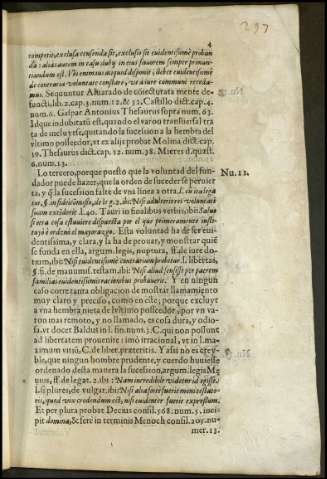 297
4
comperit, exclusa censenda sit, exclusio sit euidentissimè proban
da: alias autem in casu dubij in eius fauorem semper pronun-
tiandum est. Vbi enim ius aliquod disponit, debet euidentissimè
de contrario voluntate constare, vt à iure communi receda-
mus. Sequuntur Aluarado de coiecturata mente de-
functi, lib. 2. cap. 3. num. 12. & 32. Castillo dict. cap. 4.
num. 6. Gaspar Antonius Thesaurus supra num. 63.
Idque indubitatũ est, quando el varon transuersal tra
ta de incluyrse, quitando la sucesion a la hembra del
vltimo posseedor, vt ex alijs probat Molina dict. cap.
Thesaurus dict. cap. 32. num. 38. Mieres d. quæst.
6. num. 13.
Lo tercero, porque puesto que la voluntad del fun-
dador puede hazer, que la orden de suceder se peruier
ta, y q̃ la sucession salte de vna linea a otra
Nu. 12.
suum extiderit l. 40. Tauri in finalibus verbis, ibi: Salue
si otra cosa estuuiere dispuesta por el que primeramente insti-
tuyò e ordenò el mayorazgo. Esta voluntad ha de ser eui
dentissima, y clara, y la ha de prouar, y monstrar quiẽ
se funda en ella, argum. legis, nuptura, ff. de iure do-
tium, ibi: Nisi euidentissimè contrarium probetur. l. libertas,
§. fi. de manumis. testam. ibi: Nisi aliud sensisse
familias euidentissimis rationibus probauerit. Y en ningun
caso corre tanta obligacion de mostrar llamamiento
muy claro y preciso, como en este, porque excluyr
a vna hembra nieta de vltimo posseedor, por vn va-
ron mas remoto, y no llamado, es cosa dura, y odio-
sa. vt docet Baldus in l. fin. num. 3. C. qui non possunt
ad libertatem prouenire: imò irracional, vt in l. ma-
ximum vitiũ. C. de liber. præteritis. Y assi no es crey-
ble, que ningun hombre prudente, y cuerdo huuiesse
ordenado desta manera la sucession, argum. legis
ff. de legat. 2. ibi: Nam incredibile videtur id egisse.
l. si plures, de vulgar. ibi: Nisi alia fuerit mens testato-
ris, quod vix credendum est, nisi euidenter fuerit expressum.
Et per plura probat Decius consil. 568. num. 5. inci-
pit domina, & ferè in terminis Menoch. consil. 209. nu-
mer. 13.